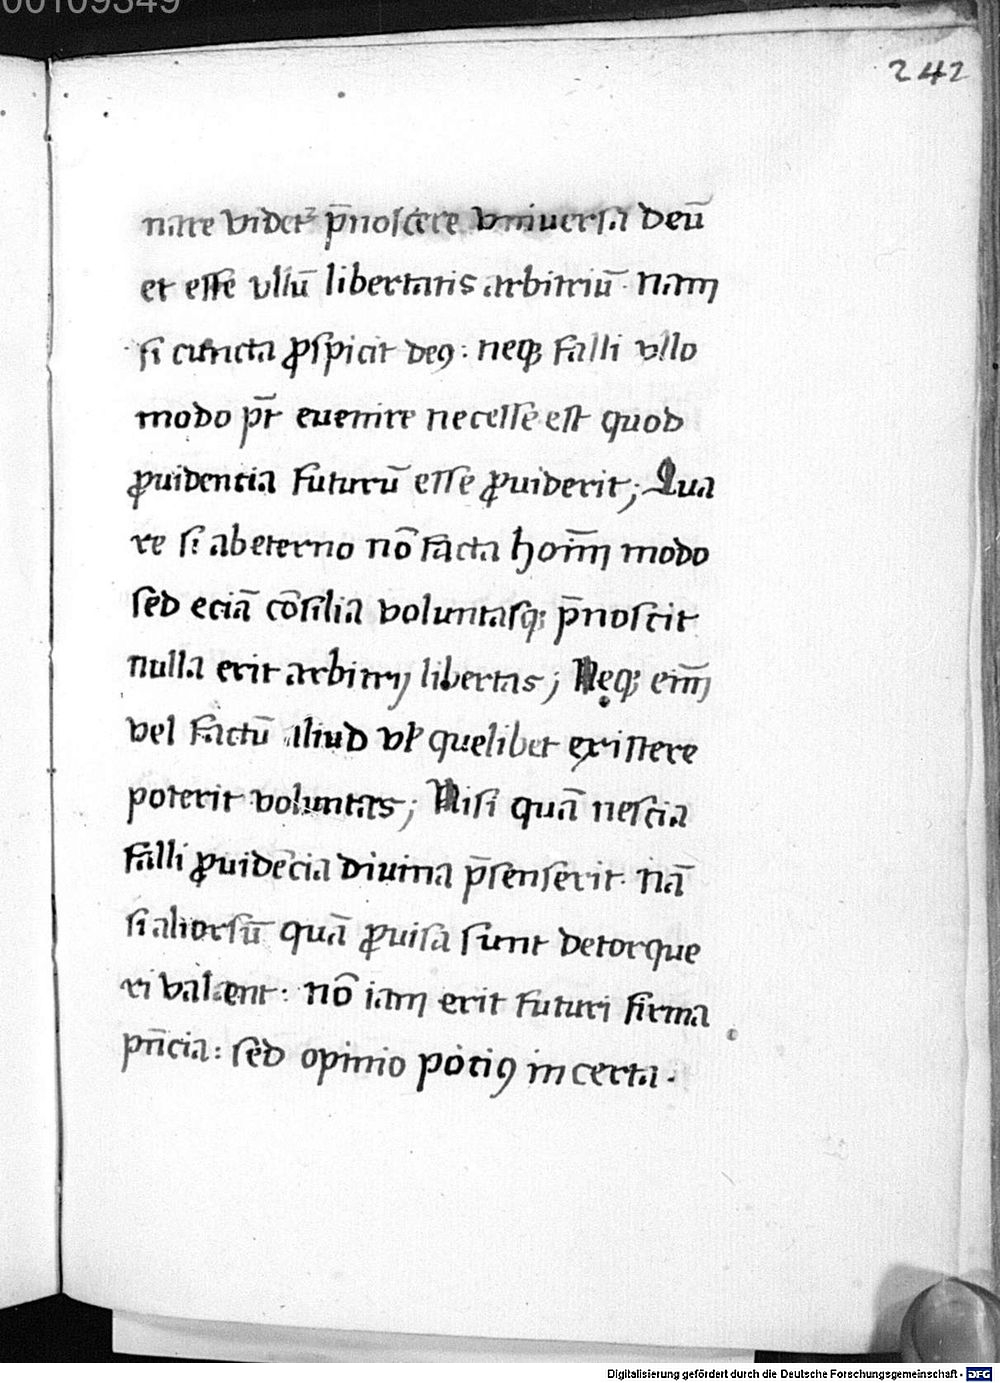 00109349
242
nare videt᷑ p̄noscere vniuersa deū
et esse vllū libertatis arbitriū. nam
si cuncta ꝓspicit deꝰ: neqꝫ falli vllo
modo pt̄ euenire necesse est quod
ꝓuidentia futurū esse ꝓuiderit; Qua
re si abeterno nō facta hoīm modo
sed eciā cōsilia voluntasqꝫ p̄noscit
nulla erit arbitrij libertas; Neqꝫ eīm
vel factū aliud vł quelibet existere
poterit voluntas; Nisi quā nescia
falli ꝓuidēcia diuina p̄senserit. nā
si aliorsū quā ꝓuisa sunt detorque
ri valent: nō iam erit futuri firma
pn̄cia: sed opinio potiꝰ incerta.
Digitalisierung gefördert durch die Deutsche Forschungsgemeinschaft - DFG